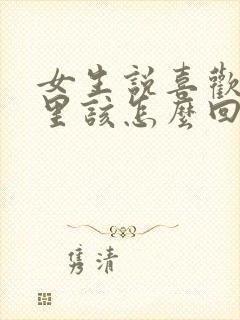 女生說喜歡
里該怎麼回
隽清